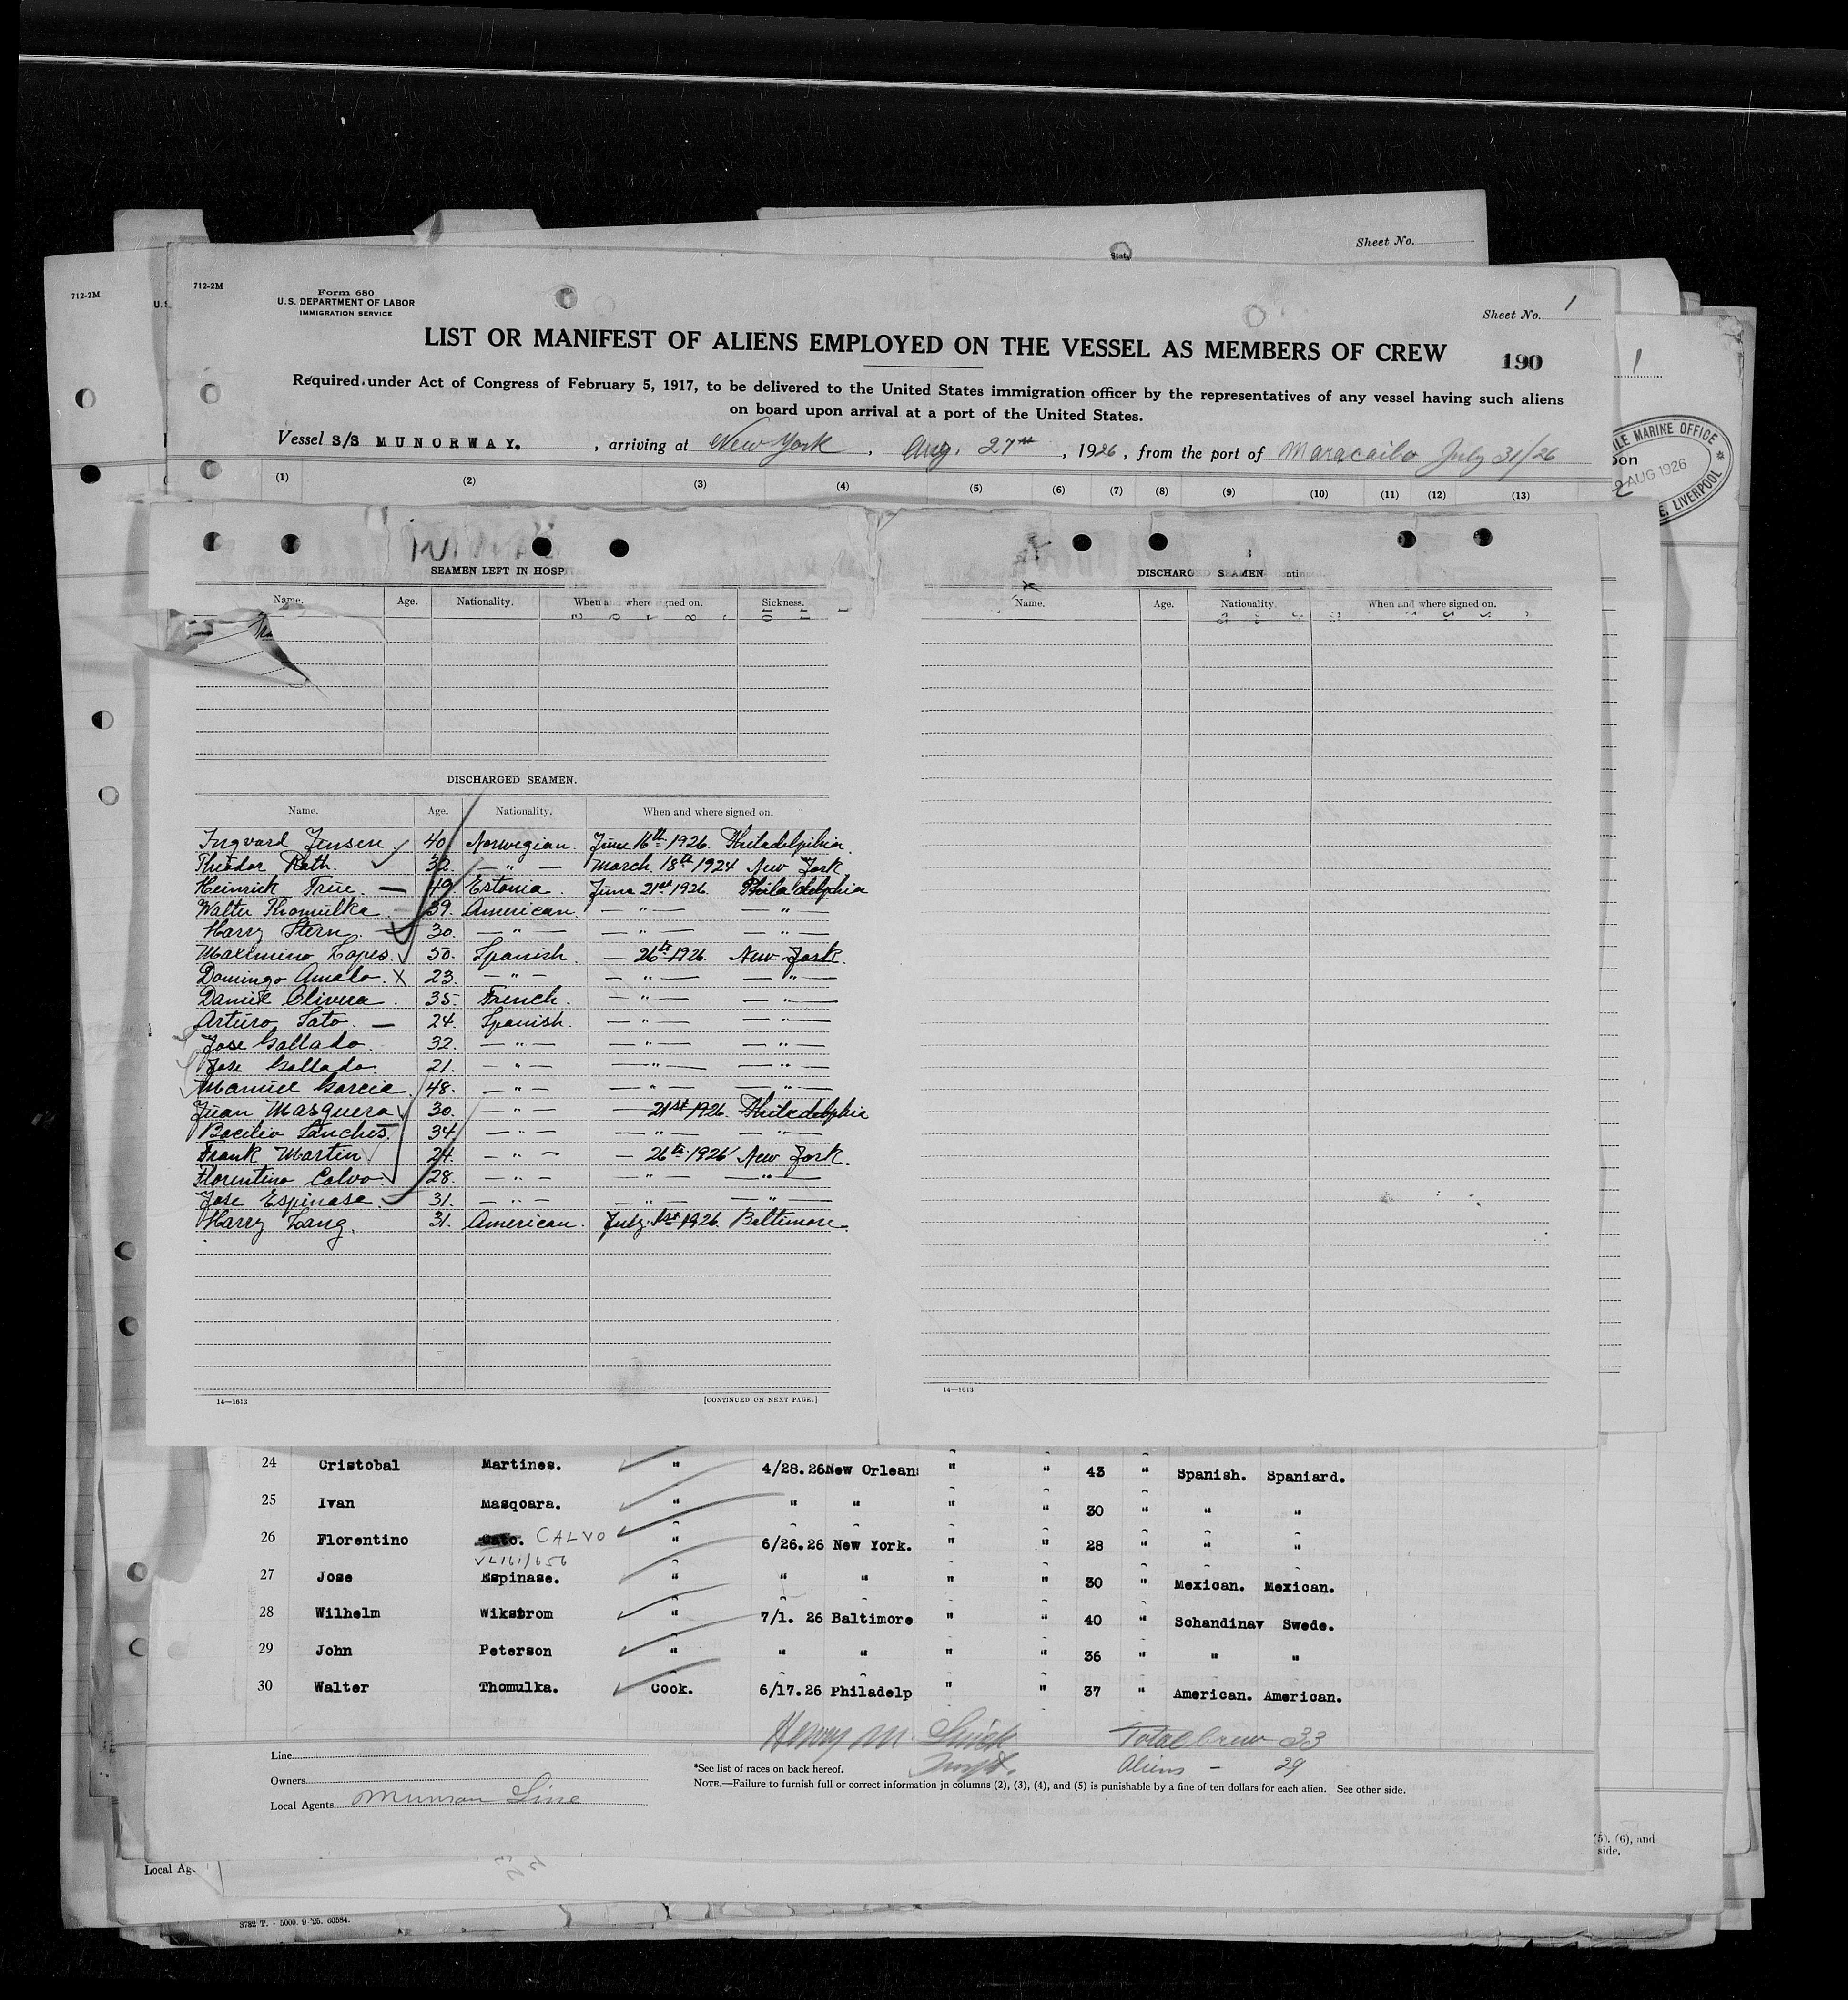 Sheet No.
712-2M
712-2M
Form 680
U.S. DEPARTMENT OF LABOR
IMMIGRATION SERVICE
Sheet No. 1
LIST OR MANIFEST OF ALIENS EMPLOYED ON THE VESSEL AS MEMBERS OF CREW
190
Required under Act of Congress of February 5, 1917, to be delivered to the United States immigration officer by the representatives of any vessel having such aliens
on board upon arrival at a port of the United States.
Vessel S/S MUNORWAY. , arriving at New York , Aug. 27th , 1926, from the port of Maracaibo July 31/26
(1) (2) (3) (4) (5) (6) (7) (8) (9) (10) (11) (12) (13)
MARINE OFFICE
AUG 1926
LIVERPOOL
SEAMEN LEFT IN HOSPI
Name. Age. Nationality. When and where signed on. Sickness.
DISCHARGED SEAMEN
Name. Age. Nationality. When and where signed on.
DISCHARGED SEAMEN.
Name. Age. Nationality. When and where signed on.
Ingvard Jensen 40 Norwegian. June 16th 1926. Philadelphia.
Theodor Rath. 32. — " — March. 18th 1924 New York
Heinrich True. — 49. Estonia. June 21st 1926. Philadelphia
Walter Thomulka. 39. American. — " — " —
Harry Stern. 30. — " — — " — — " —
Maximino Lopes. 50. Spanish. — 26th 1926. New York.
Domingo Amalo. X 23. — " — — " — — " —
Daniel Olivera. 35. French. — " — — " —
Arturo Sato. — 24. Spanish. — " — — " —
Jose Gallado. 32. — " — — " — — " —
Jose Gallado. 21. — " — — " — — " —
Manuel Garcia. 48. — " — — " — — " —
Juan Masquera 30. — " — — 21st 1926. Philadelphia
Bacilio Sanches. 34 — " — — " — — " —
Frank Martin 24. — " — — 26th 1926 New York.
Florentino Calvo 28. — " — " — — " —
Jose Espinase. 31. — " — — " — — " —
Harry Lang. 31. American. July. 1st 1926. Baltimore.
14—1613 [CONTINUED ON NEXT PAGE.]
14—1613
24 Cristobal Martines. " 4/28.26 New Orleans " " 43 " Spanish. Spaniard.
25 Ivan Masqoara. " " " " " 30 " " "
26 Florentino CALVO " 6/26.26 New York. " " 28 " " "
27 Jose Espinase. " " " " " 30 " Mexican. Mexican.
28 Wilhelm Wikstrom " 7/1. 26 Baltimore " " 40 " Schandinav Swede.
29 John Peterson " " " " " 36 " " "
30 Walter Thomulka. Cook. 6/17.26 Philadelp " " 37 " American. American.
Total Crew 33
Aliens - 29
Line
Owners
Local Agents Munson Line
*See list of races on back hereof.
NOTE.—Failure to furnish full or correct information in columns (2), (3), (4), and (5) is punishable by a fine of ten dollars for each alien. See other side.
(5), (6), and
side.
Local Ag
3782 T. - 5000. 9-25. 60584.